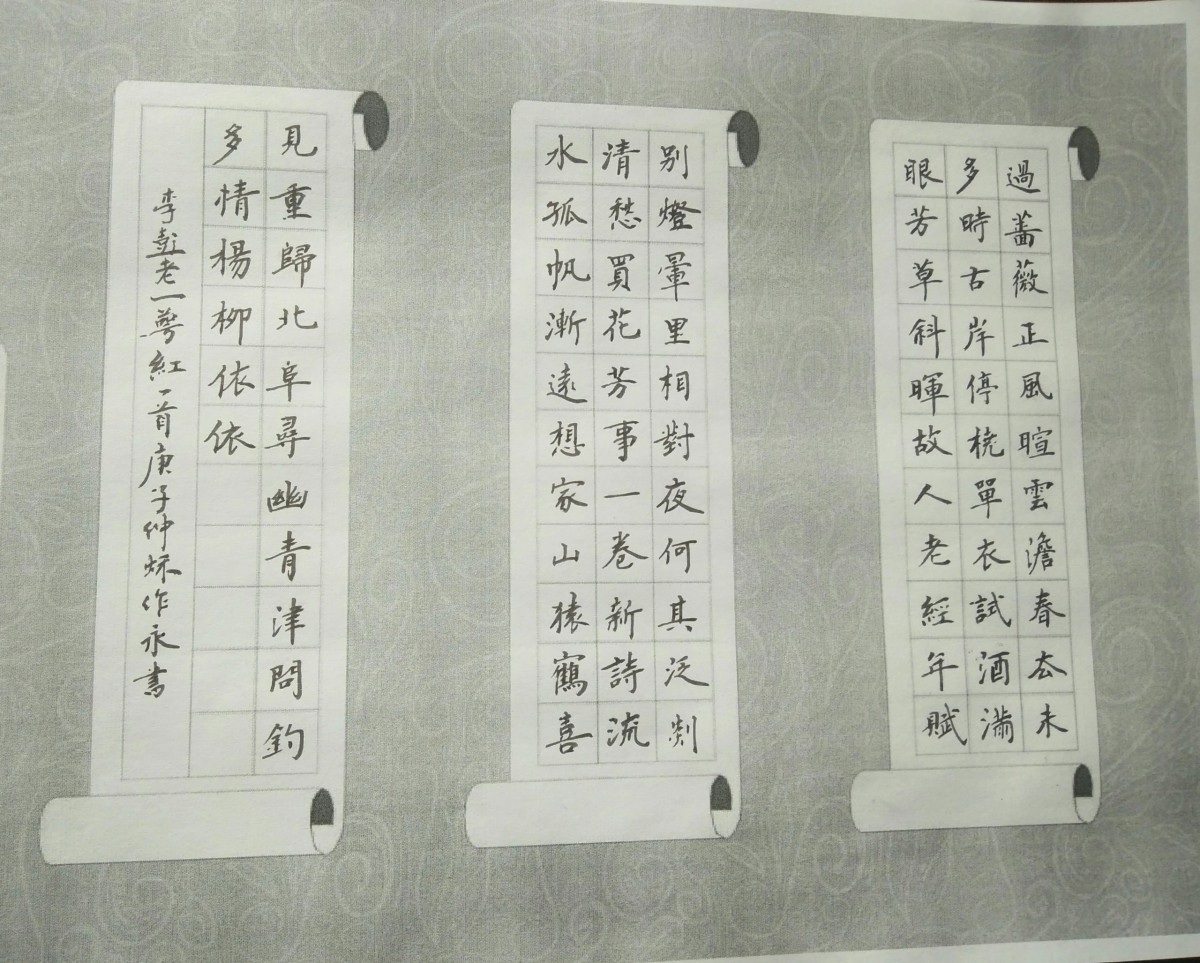 過薔薇正風暄雲澹春去未
多時古岸停橈單衣試酒滿
眼芳草斜暉故人老經年賦
別燈暈里相對夜何其泛剡
清愁買花芳事一卷新詩流
水孤帆漸遠想家山猿鶴喜
見重歸北阜尋幽青津問釣
多情楊柳依依
李彭老一萼紅一首庚子仲秋作永書